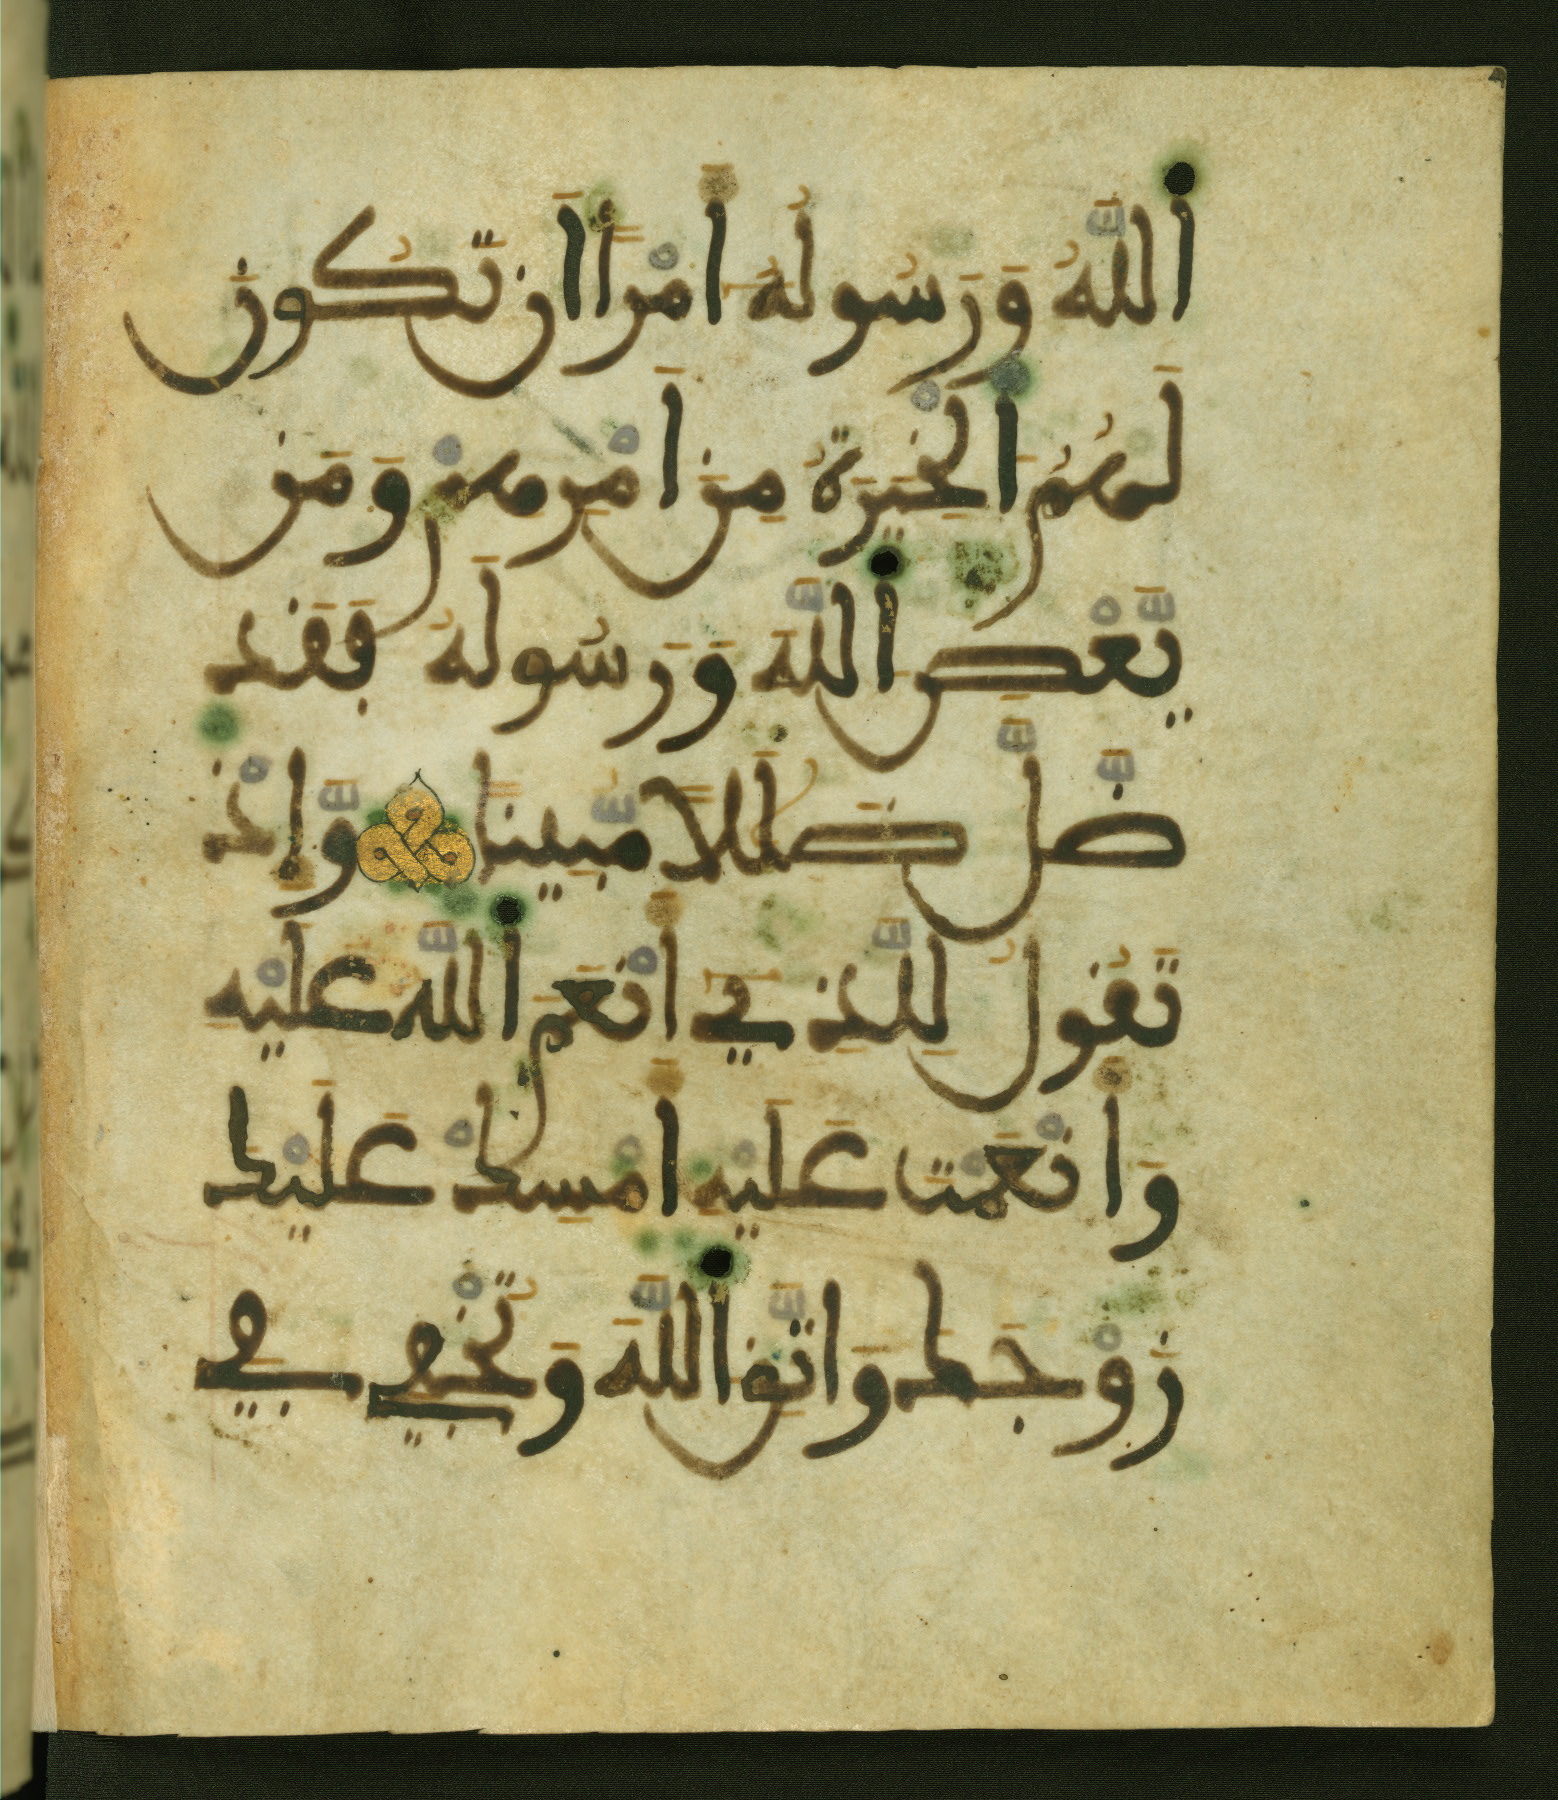 اَللَّهُ وَرَسُولُهُ أَمْرًا اَن تَكُونَ
لَهُمُ اَلْخِيَرَةُ مِنَ اَمْرِهِمْ وَمَن
يَّعْصِ اِللَّهَ وَرَسُولَهُ فَقَد
ضَّلَّ ضَلَلًا مُّبِينًا وَّإِذْ
تَقُولُ لِلَّذِي أَنْعَمَ اَللَّهُ عَلَيْهِ
وَأَنْعَمْتَ عَلَيْهِ أَمْسِكْ عَلَيْكَ
زَوْجَكَ وَاتَّقِ اِللَّهَ وَتُخْفِي فِي